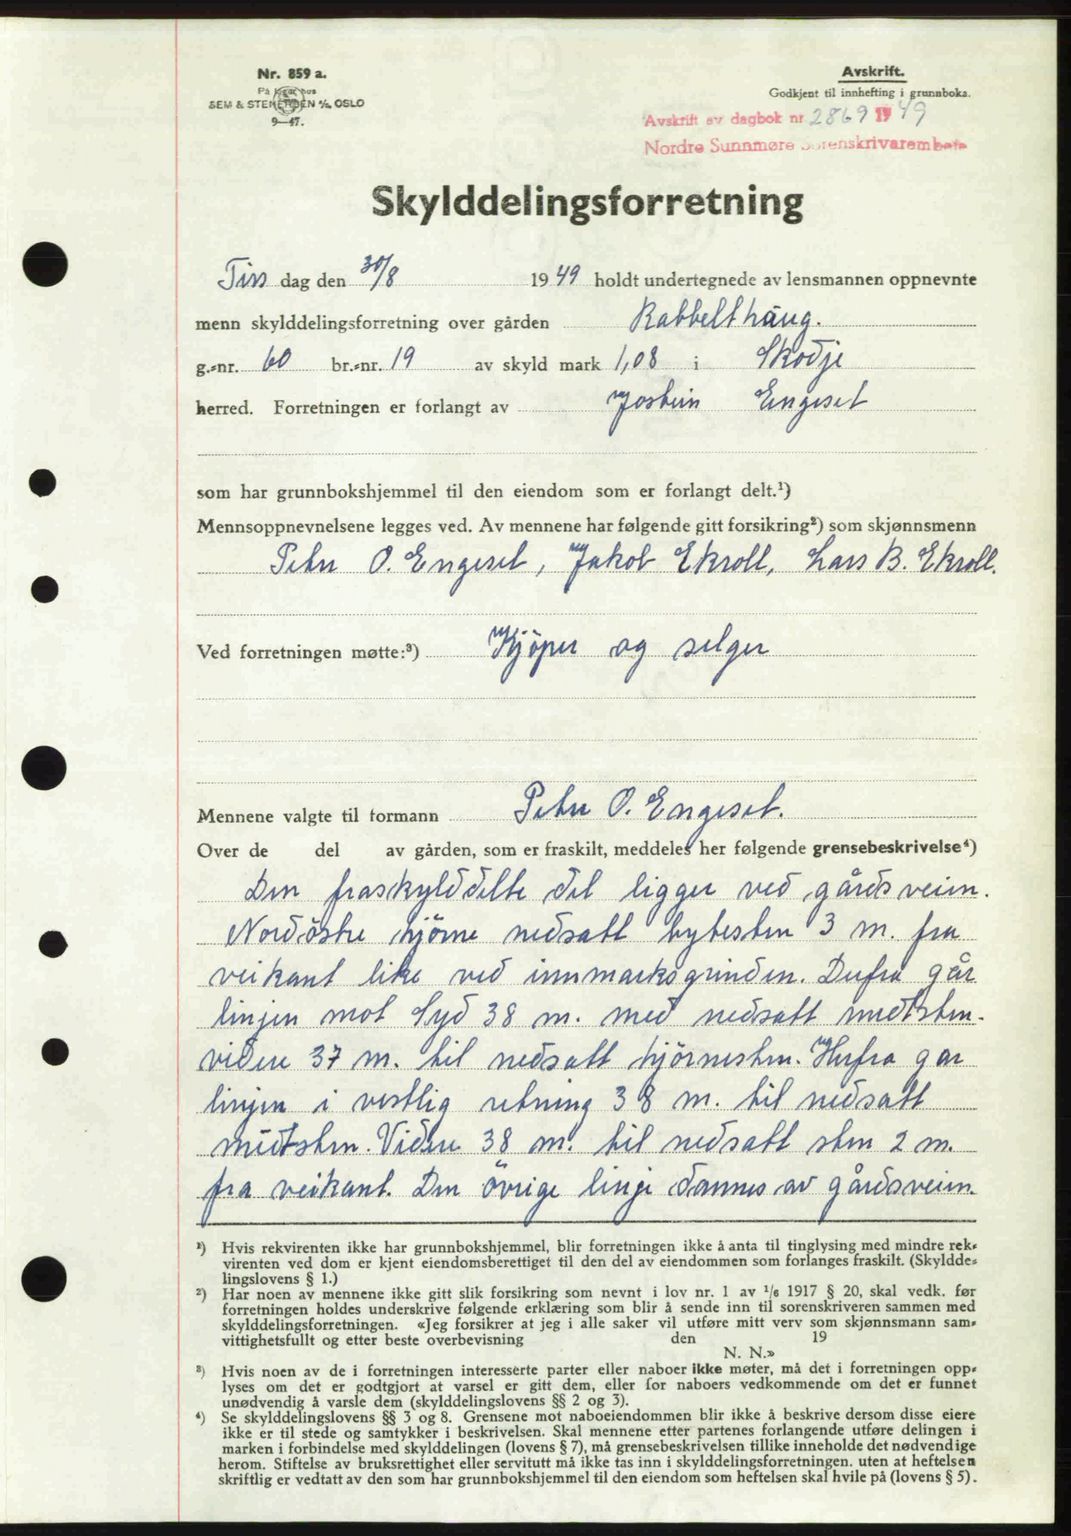 Nr. 859 a.
På lager hos
SEM & STENERSEN A/S, OSLO
9—47.
Avskrift.
Godkjent til innhefting i grunnboka.
Avskrift av dagbok nr 2869 1949
Nordre Sunnmøre Sorenskrivarembete
Skylddelingsforretning
Tirs dag den 30/8 1949 holdt undertegnede av lensmannen oppnevnte
menn skylddelingsforretning over gården Rabbelthaug.
g.-nr. 60 br.-nr. 19 av skyld mark 1,08 i Skodje
herred. Forretningen er forlangt av Jostein Engeset
som har grunnbokshjemmel til den eiendom som er forlangt delt.¹)
Mennsoppnevnelsene legges ved. Av mennene har følgende gitt forsikring²) som skjønnsmenn
Peter O. Engeset, Jakob Ekroll, Lars B. Ekroll.
Ved forretningen møtte:³) Kjöper og selger
Mennene valgte til formann Peter O. Engeset.
Over de del av gården, som er fraskilt, meddeles her følgende grensebeskrivelse⁴)
Den fraskylddelte del ligger ved gårdsveien.
Nordöstre hjörne nedsatt bytesten 3 m. fra
veikant like ved innmarksgrinden. Derfra går
linjen mot Syd 38 m. med nedsatt midtsten.
videre 37 m. til nedsatt hjörnesten. Herfra går
linjen i vestlig retning 38 m. til nedsatt
midtsten. Videre 38 m. til nedsatt sten 2 m.
fra veikant. Den övrige linje dannes av gårdsveien.
¹) Hvis rekvirenten ikke har grunnbokshjemmel, blir forretningen ikke å anta til tinglysing med mindre rek-
virenten ved dom er kjent eiendomsberettiget til den del av eiendommen som forlanges fraskilt. (Skyldde-
lingslovens § 1.)
²) Har noen av mennene ikke gitt slik forsikring som nevnt i lov nr. 1 av 1/6 1917 § 20, skal vedk. før
forretningen holdes underskrive følgende erklæring som blir å sende inn til sorenskriveren sammen med
skylddelingsforretningen. «Jeg forsikrer at jeg i alle saker vil utføre mitt verv som skjønnsmann sam-
vittighetsfullt og etter beste overbevisning den 19
N. N.»
³) Hvis noen av de i forretningen interesserte parter eller naboer ikke møter, må det i forretningen opp-
lyses om det er godtgjort at varsel er gitt dem, eller for naboers vedkommende om det er funnet
unødvendig å varsle dem (skylddelingslovens §§ 2 og 3).
⁴) Se skylddelingslovens §§ 3 og 8. Grensene mot naboeiendommen blir ikke å beskrive dersom disse eiere
ikke er til stede og samtykker i beskrivelsen. Skal mennene etter partenes forlangende utføre delingen i
marken i forbindelse med skylddelingen (lovens § 7), må grensebeskrivelsen tillike inneholde det nødvendige
herom. Stiftelse av bruksrettighet eller servitutt må ikke tas inn i skylddelingsforretningen. uten at heftelsen
skriftlig er vedtatt av den som har grunnbokshjemmel til den eiendom som heftelsen skal hvile på (lovens § 5).